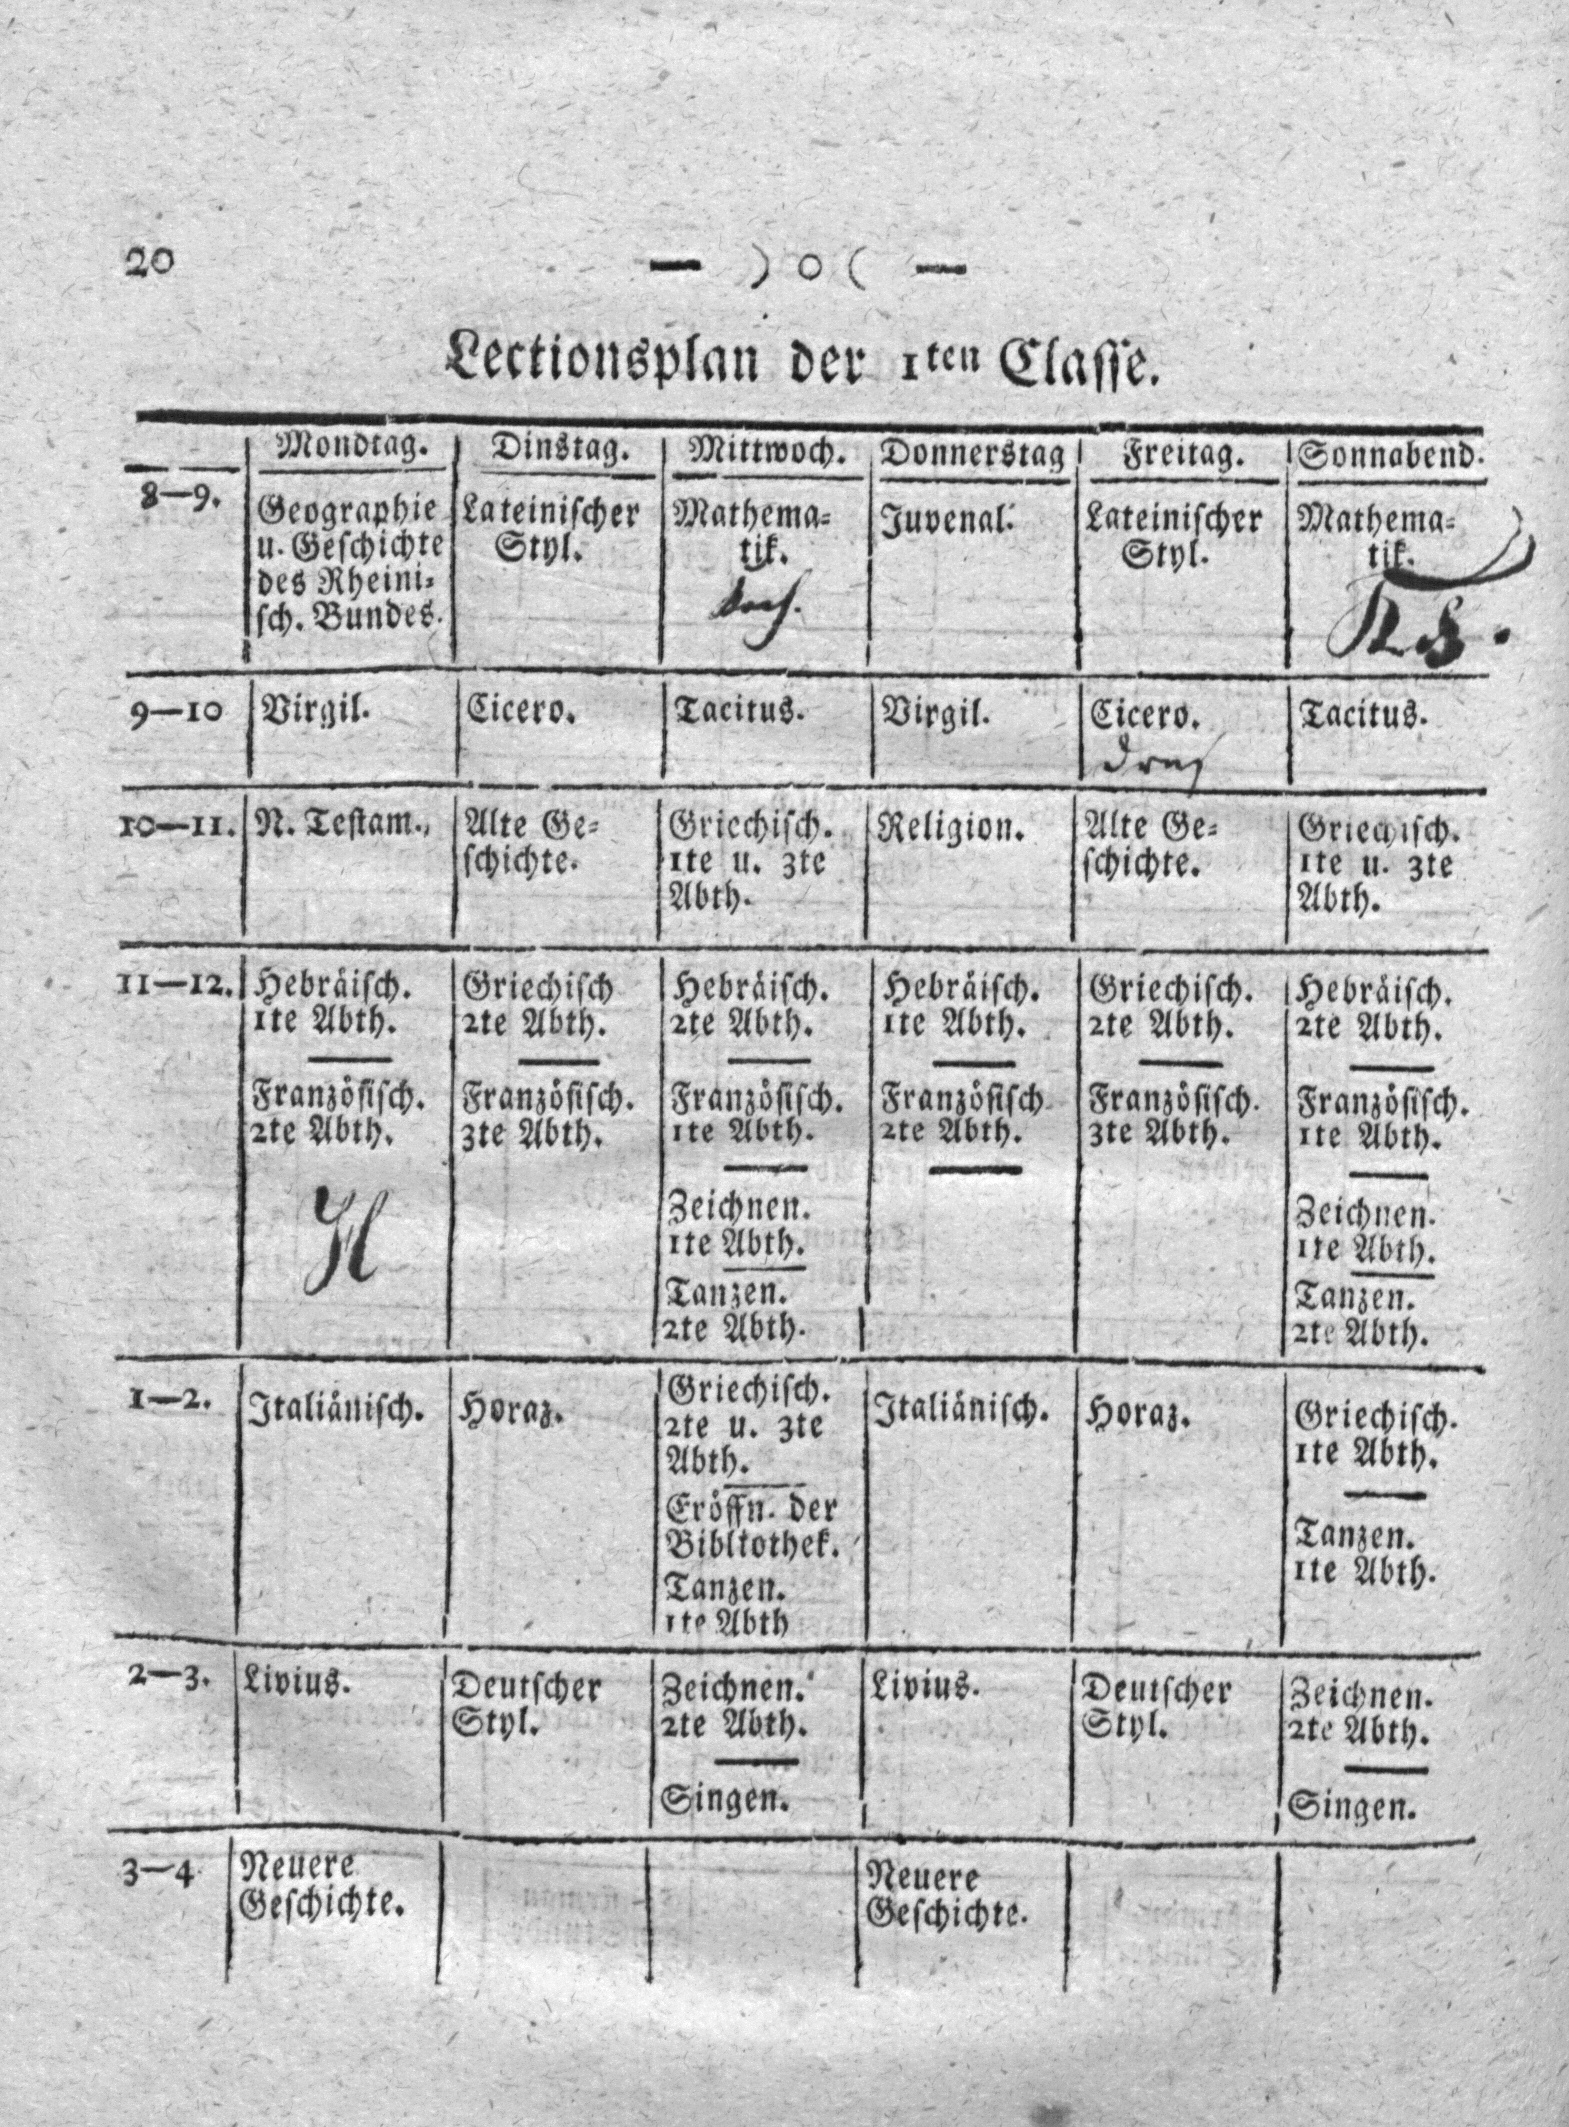 20
— ) o ( —
Lectionsplan der 1ten Classe.
Mondtag. Dinstag. Mittwoch. Donnerstag Freitag. Sonnabend.
8—9.
Geographie
u. Geschichte
des Rheini-
sch. Bundes.
Lateinischer
Styl.
Mathema-
tik.
Juvenal.
Lateinischer
Styl.
Mathema-
tik.
9—10 Virgil. Cicero. Tacitus. Virgil. Cicero. Tacitus.
10—11.
N. Testam.
Alte Ge-
schichte.
Griechisch.
1te u. 3te
Abth.
Religion.
Alte Ge-
schichte.
Griechisch.
1te u. 3te
Abth.
11—12.
Hebräisch.
1te Abth.
Französisch.
2te Abth.
H
Griechisch
2te Abth.
Französisch.
3te Abth.
Hebräisch.
2te Abth.
Französisch.
1te Abth.
Zeichnen.
1te Abth.
Tanzen.
2te Abth.
Hebräisch.
1te Abth.
Französisch
2te Abth.
Griechisch.
2te Abth.
Französisch.
3te Abth.
Hebräisch.
2te Abth.
Französisch.
1te Abth.
Zeichnen.
1te Abth.
Tanzen.
2te Abth.
1—2.
Italiänisch.
Horaz.
Griechisch.
2te u. 3te
Abth.
Eröffn. der
Bibliothek.
Tanzen.
1te Abth
Italiänisch.
Horaz.
Griechisch.
1te Abth.
Tanzen.
1te Abth.
2—3.
Livius.
Deutscher
Styl.
Zeichnen.
2te Abth.
Singen.
Livius.
Deutscher
Styl.
Zeichnen.
2te Abth.
Singen.
3—4
Neuere
Geschichte.
Neuere
Geschichte.